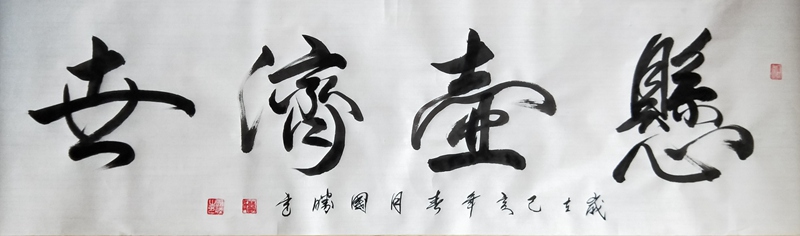 懸壺濟世
歲在己亥年春月國勝書